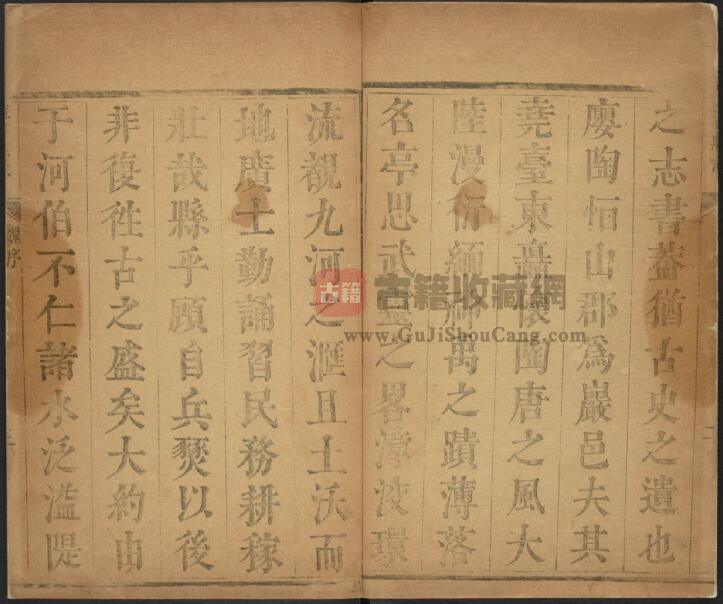 之志書葢猶古史之遺也
廮陶恒山郡爲巖邑夫其
堯臺東矗懷陶唐之風大
陸漫衍緬神禹之蹟薄落
名亭思武靈之畧漳洨環
流觀九河之滙且土沃而
地廣士勤誦習民務耕稼
壯哉縣乎顧自兵燹以後
非復徃古之盛矣大約由
于河伯不仁諸水泛滥隄
序
古籍
古籍收藏網
www.GuJiShouCang.com